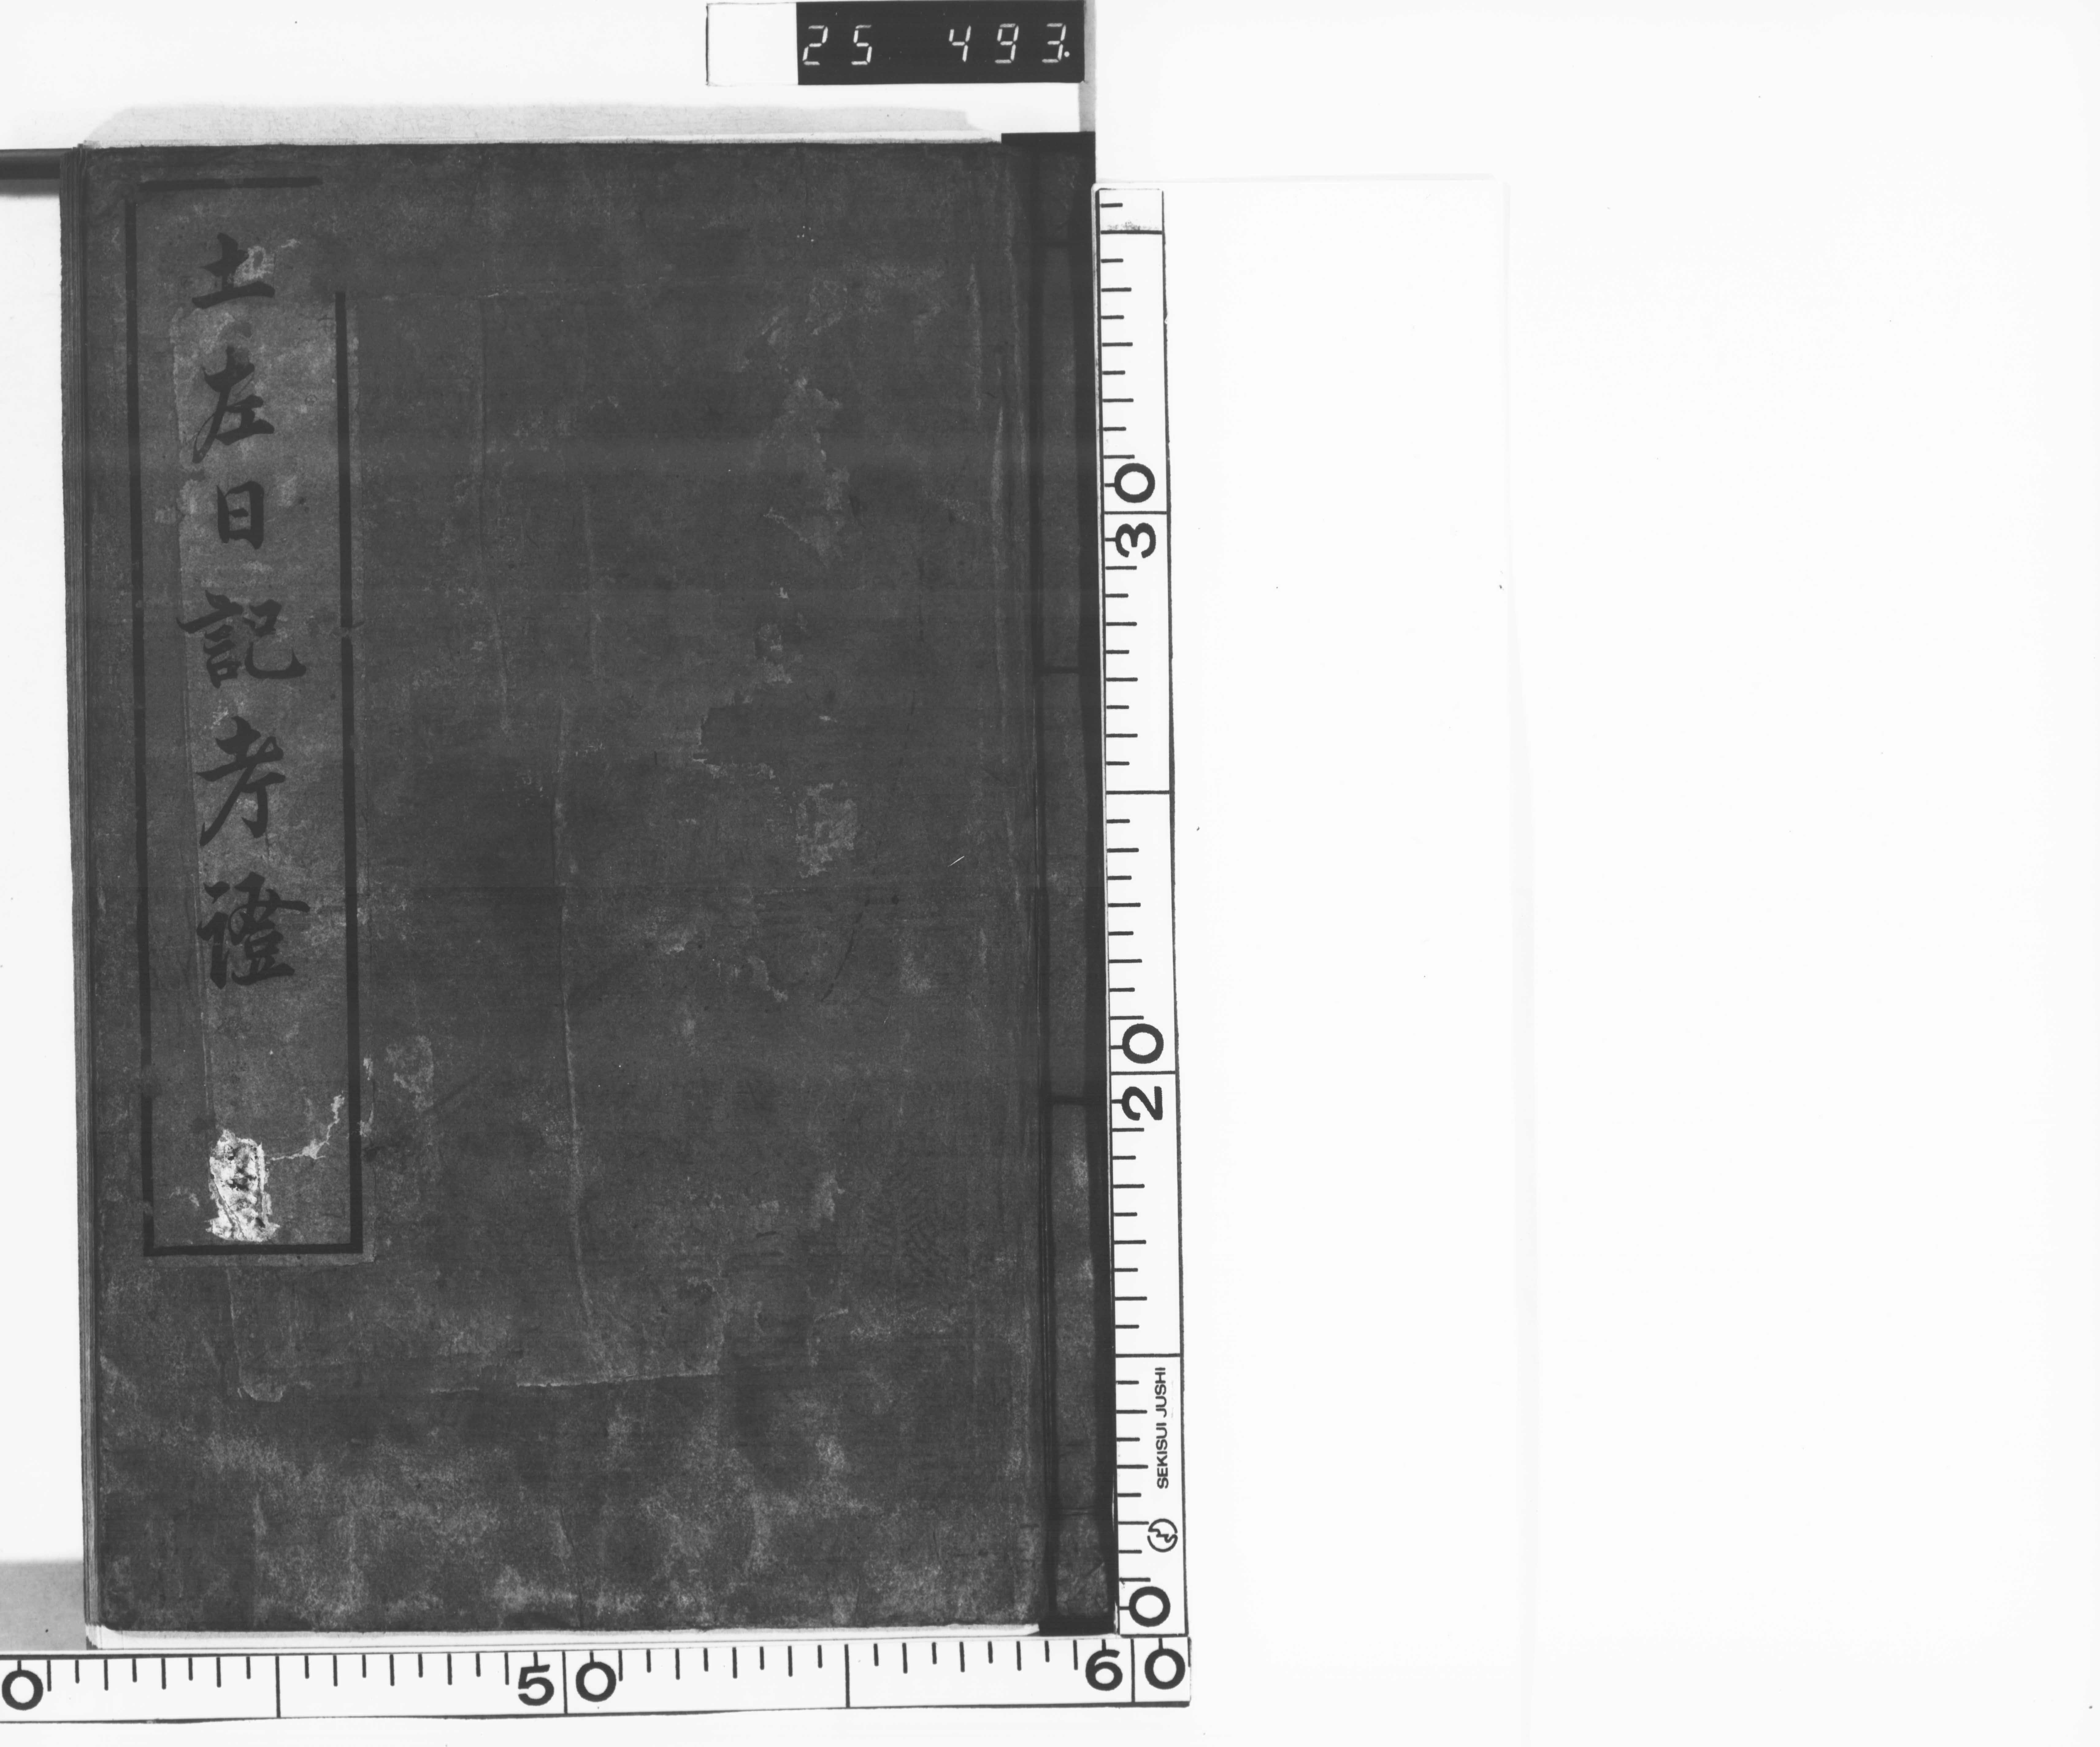 25 493.
土左日記考證
30
20
SEKISUI JUSHI
0
0 50 60